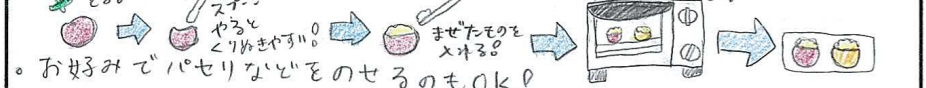 やると
くりぬきやすい!
まぜたものを
入れる!
。お好みでパセリなどをのせるのもOK!